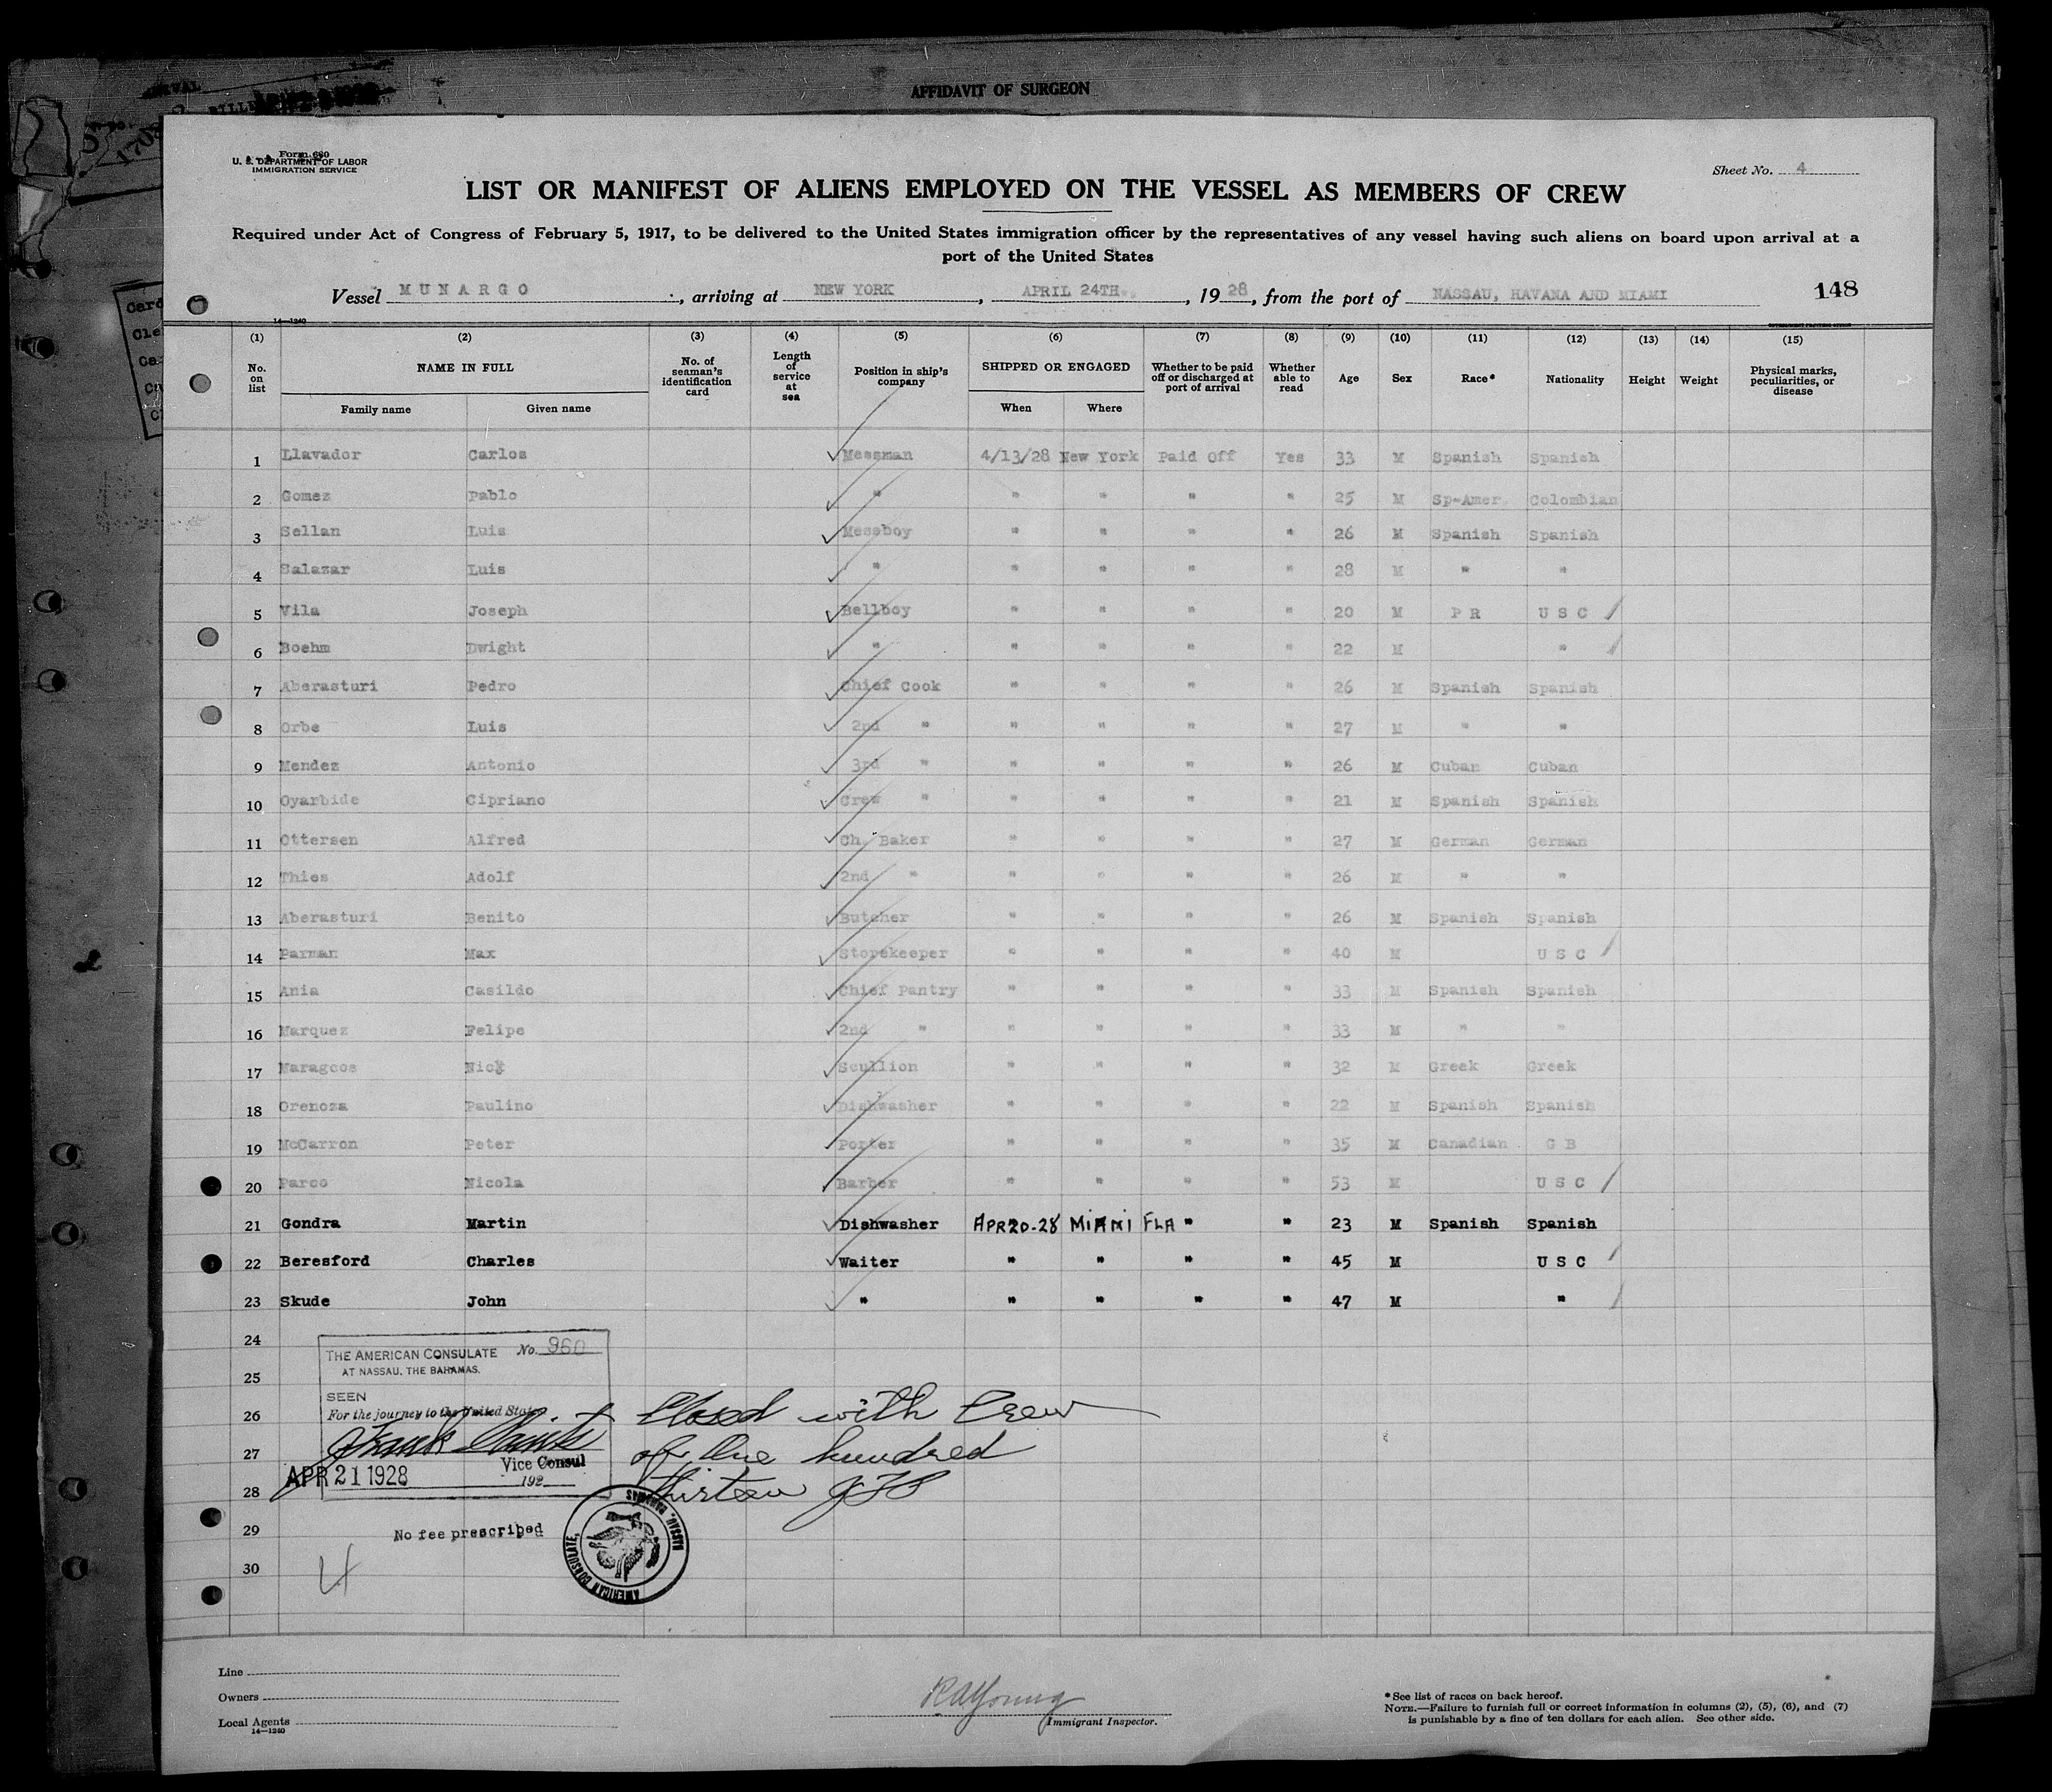 AFFIDAVIT OF SURGEON
Form 680
U. S. DEPARTMENT OF LABOR
IMMIGRATION SERVICE
Sheet No. 4
LIST OR MANIFEST OF ALIENS EMPLOYED ON THE VESSEL AS MEMBERS OF CREW
Required under Act of Congress of February 5, 1917, to be delivered to the United States immigration officer by the representatives of any vessel having such aliens on board upon arrival at a
port of the United States
Vessel MUNARGO, arriving at NEW YORK, APRIL 24TH., 1928, from the port of NASSAU, HAVANA AND MIAMI 148
14—1240
(1) (2) (3) (4) (5) (6) (7) (8) (9) (10) (11) (12) (13) (14) (15)
No. on list NAME IN FULL Family name Given name No. of seaman's identification card Length of service at sea Position in ship's company SHIPPED OR ENGAGED When Where Whether to be paid off or discharged at port of arrival Whether able to read Age Sex Race* Nationality Height Weight Physical marks, peculiarities, or disease
1 Llavador Carlos Messman 4/13/28 New York Paid Off Yes 33 M Spanish Spanish
2 Gomez Pablo " " " " " 25 M Sp-Amer. Colombian
3 Sellan Luis Messboy " " " " 26 M Spanish Spanish
4 Salazar Luis " " " " " 28 M " "
5 Vila Joseph Bellboy " " " " 20 M P R U S C
6 Boehm Dwight " " " " " 22 M "
7 Aberasturi Pedro Chief Cook " " " " 26 M Spanish Spanish
8 Orbe Luis 2nd " " " " " 27 M " "
9 Mendez Antonio 3rd " " " " " 26 M Cuban Cuban
10 Oyarbide Cipriano Crew " " " " " 21 M Spanish Spanish
11 Ottersen Alfred Ch. Baker " " " " 27 M German German
12 Thies Adolf 2nd " " " " " 26 M " "
13 Aberasturi Benito Butcher " " " " 26 M Spanish Spanish
14 Parman Max Storekeeper " " " " 40 M U S C
15 Ania Casildo Chief Pantry " " " " 33 M Spanish Spanish
16 Marquez Felipe 2nd " " " " " 33 M " "
17 Maragcos Nick Scullion " " " " 32 M Greek Greek
18 Orenoza Paulino Dishwasher " " " " 22 M Spanish Spanish
19 McCarron Peter Porter " " " " 35 M Canadian G B
20 Parco Nicola Barber " " " " 53 M U S C
21 Gondra Martin Dishwasher APR 20-28 MIAMI FLA " " 23 M Spanish Spanish
22 Beresford Charles Waiter " " " " 45 M U S C
23 Skude John " " " " " 47 M "
24
25
26
27
28
29
30
THE AMERICAN CONSULATE No. 960
AT NASSAU, THE BAHAMAS.
SEEN
For the journey to the United States
Vice Consul
APR 21 1928 192
No fee prescribed
4
Closed with Crew
of One hundred
thirteen
AMERICAN CONSULATE, NASSAU, BAHAMAS
Line
Owners
Local Agents
14—1240
R A Young
Immigrant Inspector.
* See list of races on back hereof.
NOTE.—Failure to furnish full or correct information in columns (2), (5), (6), and (7)
is punishable by a fine of ten dollars for each alien. See other side.